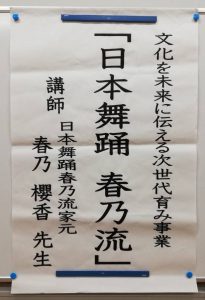 文化を未来に伝える次世代育み事業
「日本舞踊 春乃流」
日本舞踊春乃流家元
講師 春乃 櫻香 先生